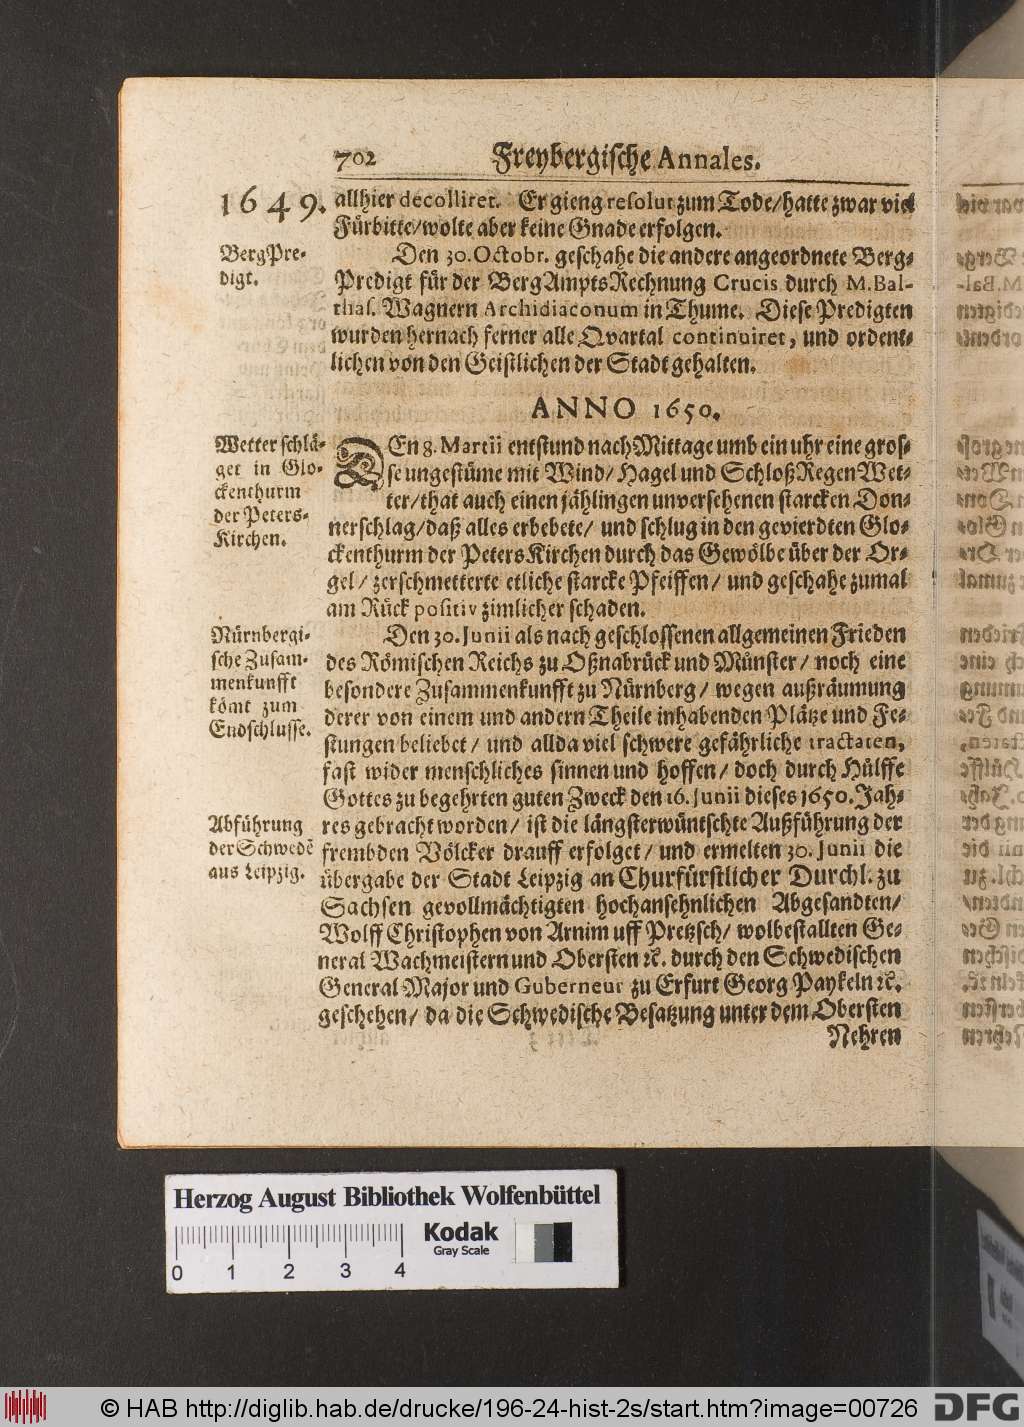 702 Freybergische Annales.
1649. allhier decolliret. Er gieng resolut zum Tode/ hatte zwar viel
Fürbitte/ wolte aber keine Gnade erfolgen.
BergPre-
digt.
Den 30. Octobr. geschahe die andere angeordnete Berg-
Predigt für der BergAmptsRechnung Crucis durch M. Bal-
thaſ. Wagnern Archidiaconum in Thume. Diese Predigten
wurden hernach ferner alle Qvartal continuiret, und ordent-
lichen von den Geistlichen der Stadt gehalten.
ANNO 1650.
Wetter schlä-
get in Glo-
ckenthurm
der Peters-
Kirchen.
DEn 8. Martii entstund nach Mittage umb ein uhr eine gros-
se ungestüme mit Wind/ Hagel und SchloßRegen Wet-
ter/ that auch einen jählingen unversehenen starcken Don-
nerschlag/ daß alles erbebete/ und schlug in den gevierdten Glo-
ckenthurm der PetersKirchen durch das Gewölbe über der Or-
gel/ zerschmetterte etliche starcke Pfeiffen/ und geschahe zumal
am Rück positiv zimlicher schaden.
Nürnbergi-
sche Zusam-
menkunfft
kömt zum
Endschlusse.
Den 30. Junii als nach geschlossenen allgemeinen Frieden
des Römischen Reichs zu Oßnabrück und Münster/ noch eine
besondere Zusammenkunfft zu Nürnberg/ wegen außräumung
derer von einem und andern Theile inhabenden Plätze und Fe-
stungen beliebet/ und allda viel schwere gefährliche tractaten,
fast wider menschliches sinnen und hoffen/ doch durch Hülffe
Gottes zu begehrten guten Zweck den 16. Junii dieses 1650. Jah-
Abführung
der Schwedē
aus Leipzig.
res gebracht worden/ ist die längsterwüntschte Außführung der
frembden Völcker drauff erfolget/ und ermelten 30. Junii die
übergabe der Stadt Leipzig an Churfürstlicher Durchl. zu
Sachsen gevollmächtigten hochansehnlichen Abgesandten/
Wolff Christophen von Arnim uff Pretzsch/ wolbestallten Ge-
neral Wachmeistern und Obersten ꝛc. durch den Schwedischen
General Major und Guberneur zu Erfurt Georg Paykeln ꝛc.
geschehen/ da die Schwedische Besatzung unter dem Obersten
Nehren
Herzog August Bibliothek Wolfenbüttel
Kodak
Gray Scale
0 1 2 3 4
© HAB http://diglib.hab.de/drucke/196-24-hist-2s/start.htm?image=00726
DFG